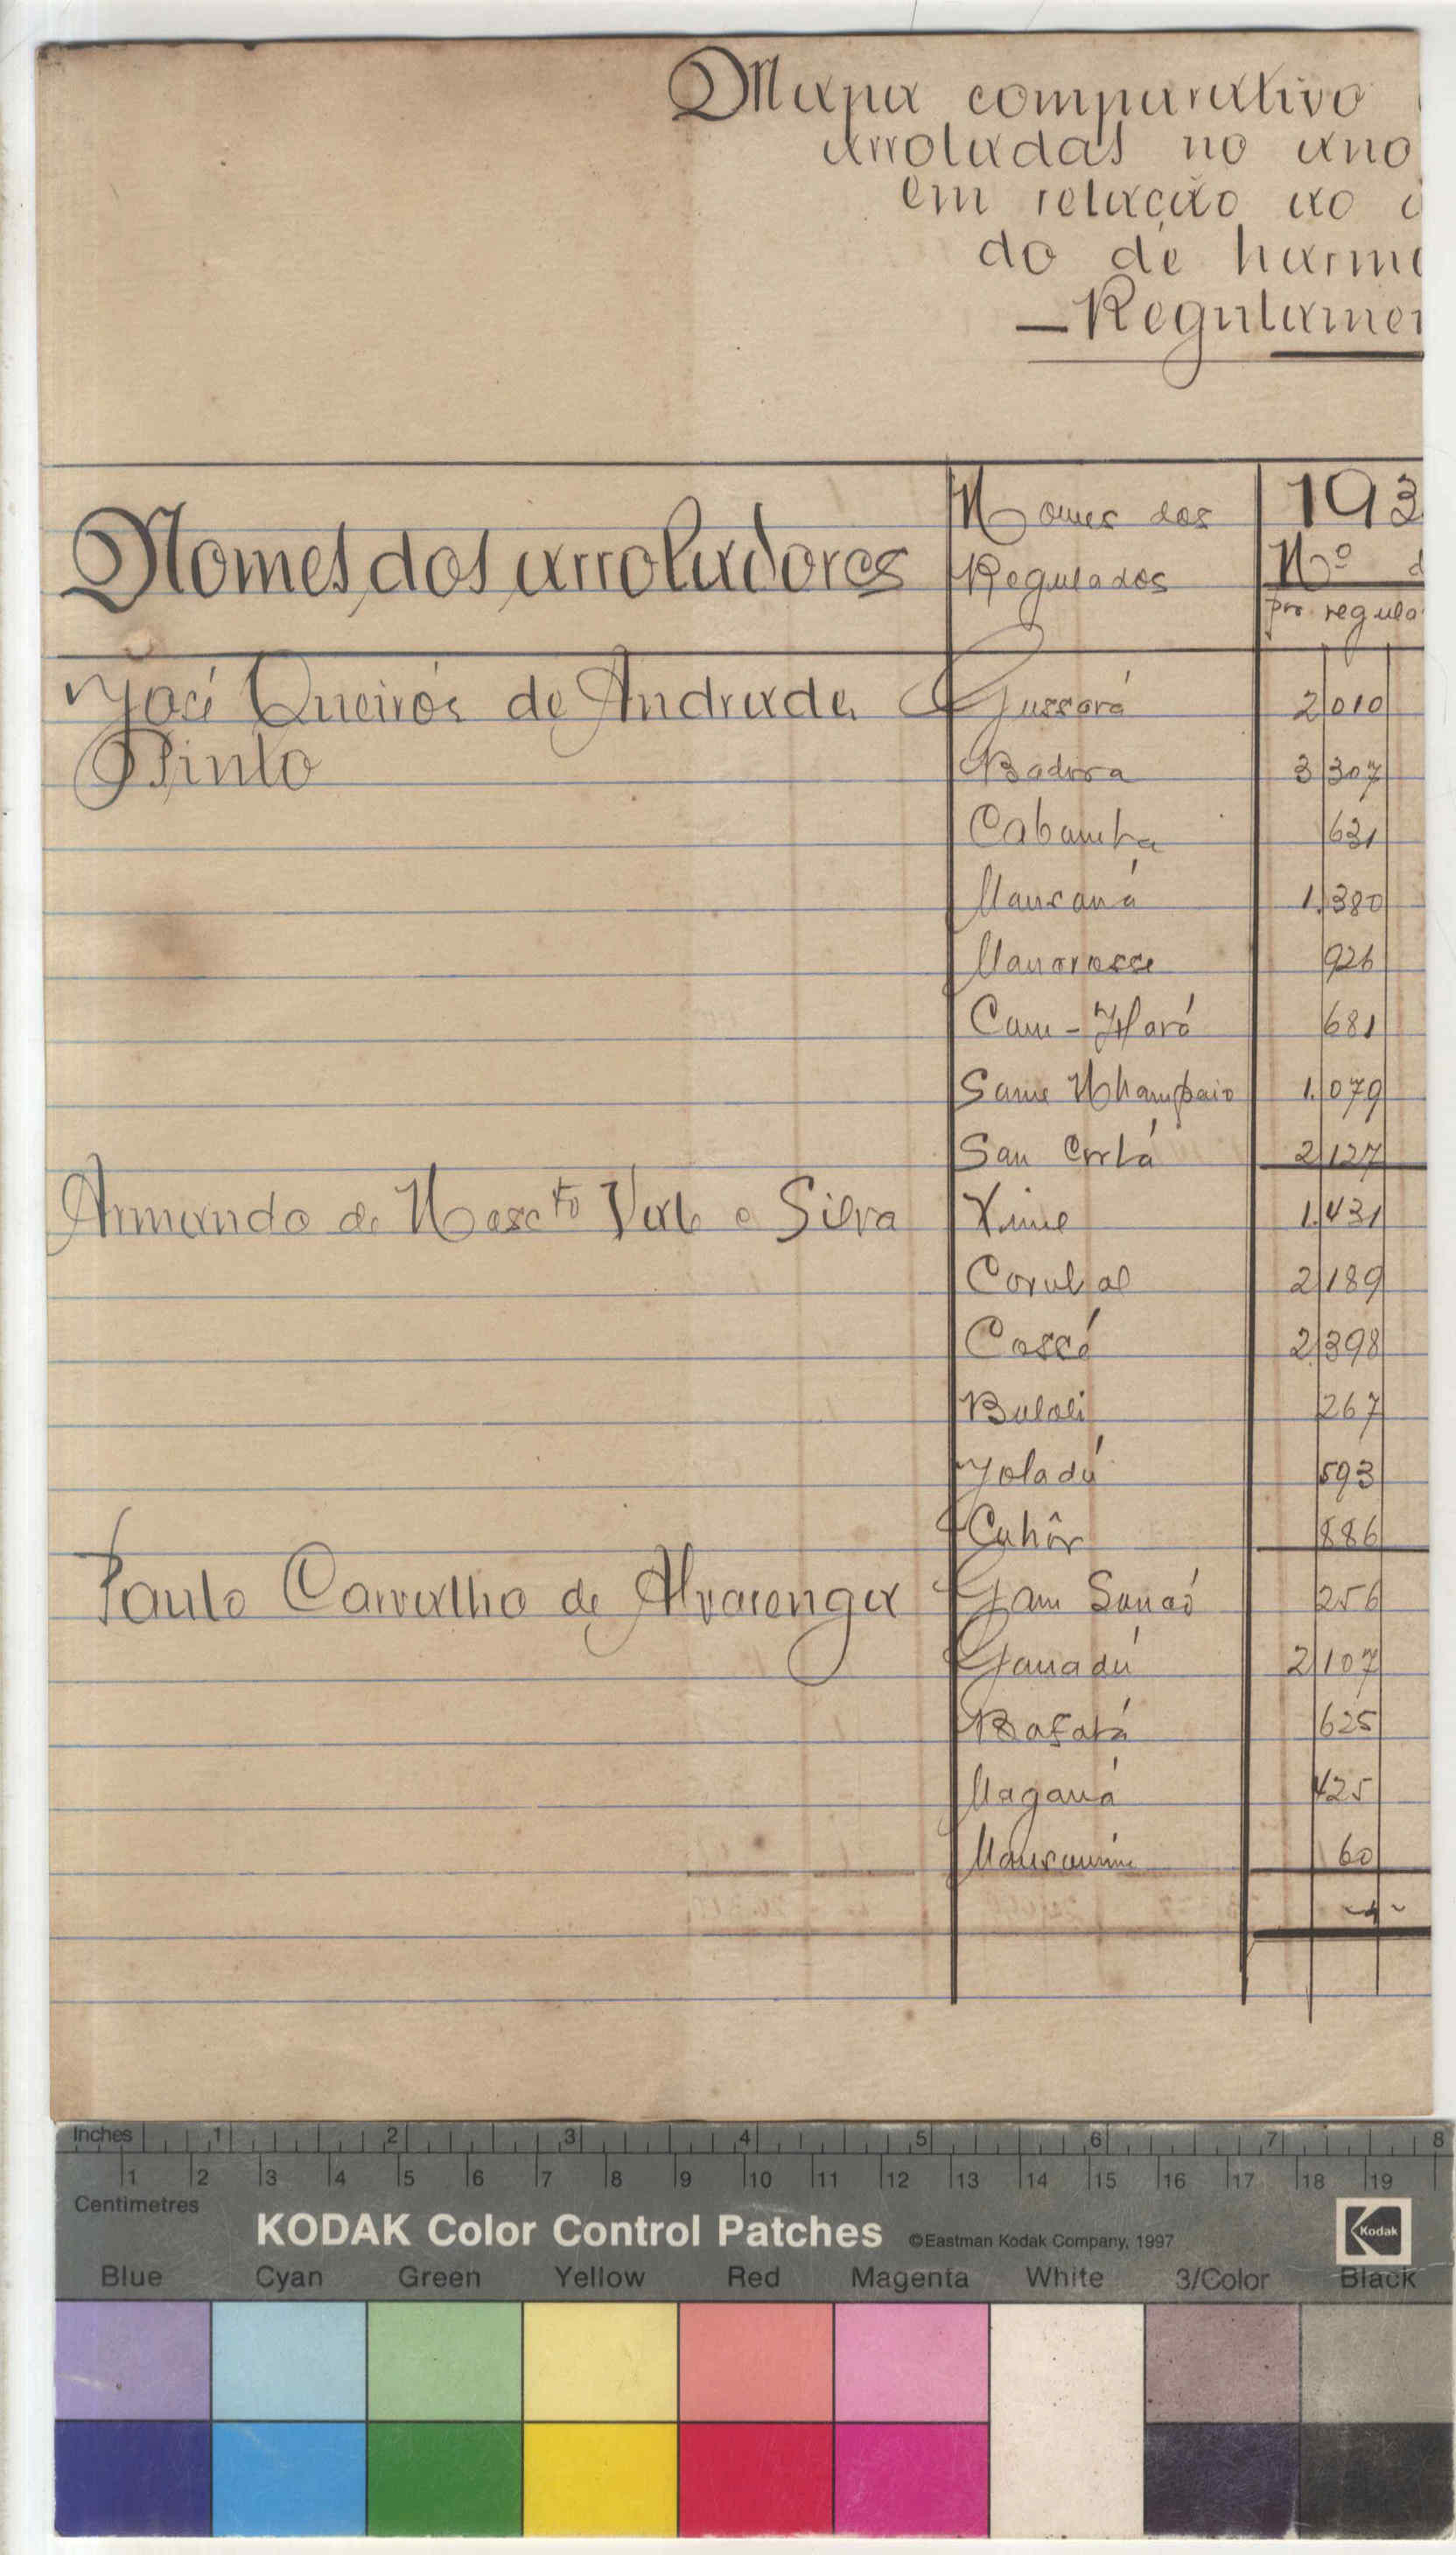 Mapa comparativo
arroladas no ano
em relação ao
do de harmo
Regulamen
Nomes dos arroladores
Nomes dos
Regulados
193
Nº d
por regula
José Queirós de Andrade Gussará 2 010
Pinto Badora 3 307
Cabomba 631
Mansaná 1.380
Manarosse 926
Cam-Hará 681
Same Nhampaio 1.079
San Corlá 2 127
Armando do Nascto Vale e Silva Xime 1.431
Corubal 2 189
Cossé 2 398
Buloli 267
Joladú 593
Cuhôr 886
Paulo Carvalho de Alvarenga Gam Sancó 256
Ganadú 2 107
Bafatá 625
Maganá 425
60
Inches 1 2 3 4 5 6 7 8
1 2 3 4 5 6 7 8 9 10 11 12 13 14 15 16 17 18 19
Centimetres
KODAK Color Control Patches ©Eastman Kodak Company, 1997 Kodak
Blue Cyan Green Yellow Red Magenta White 3/Color Black